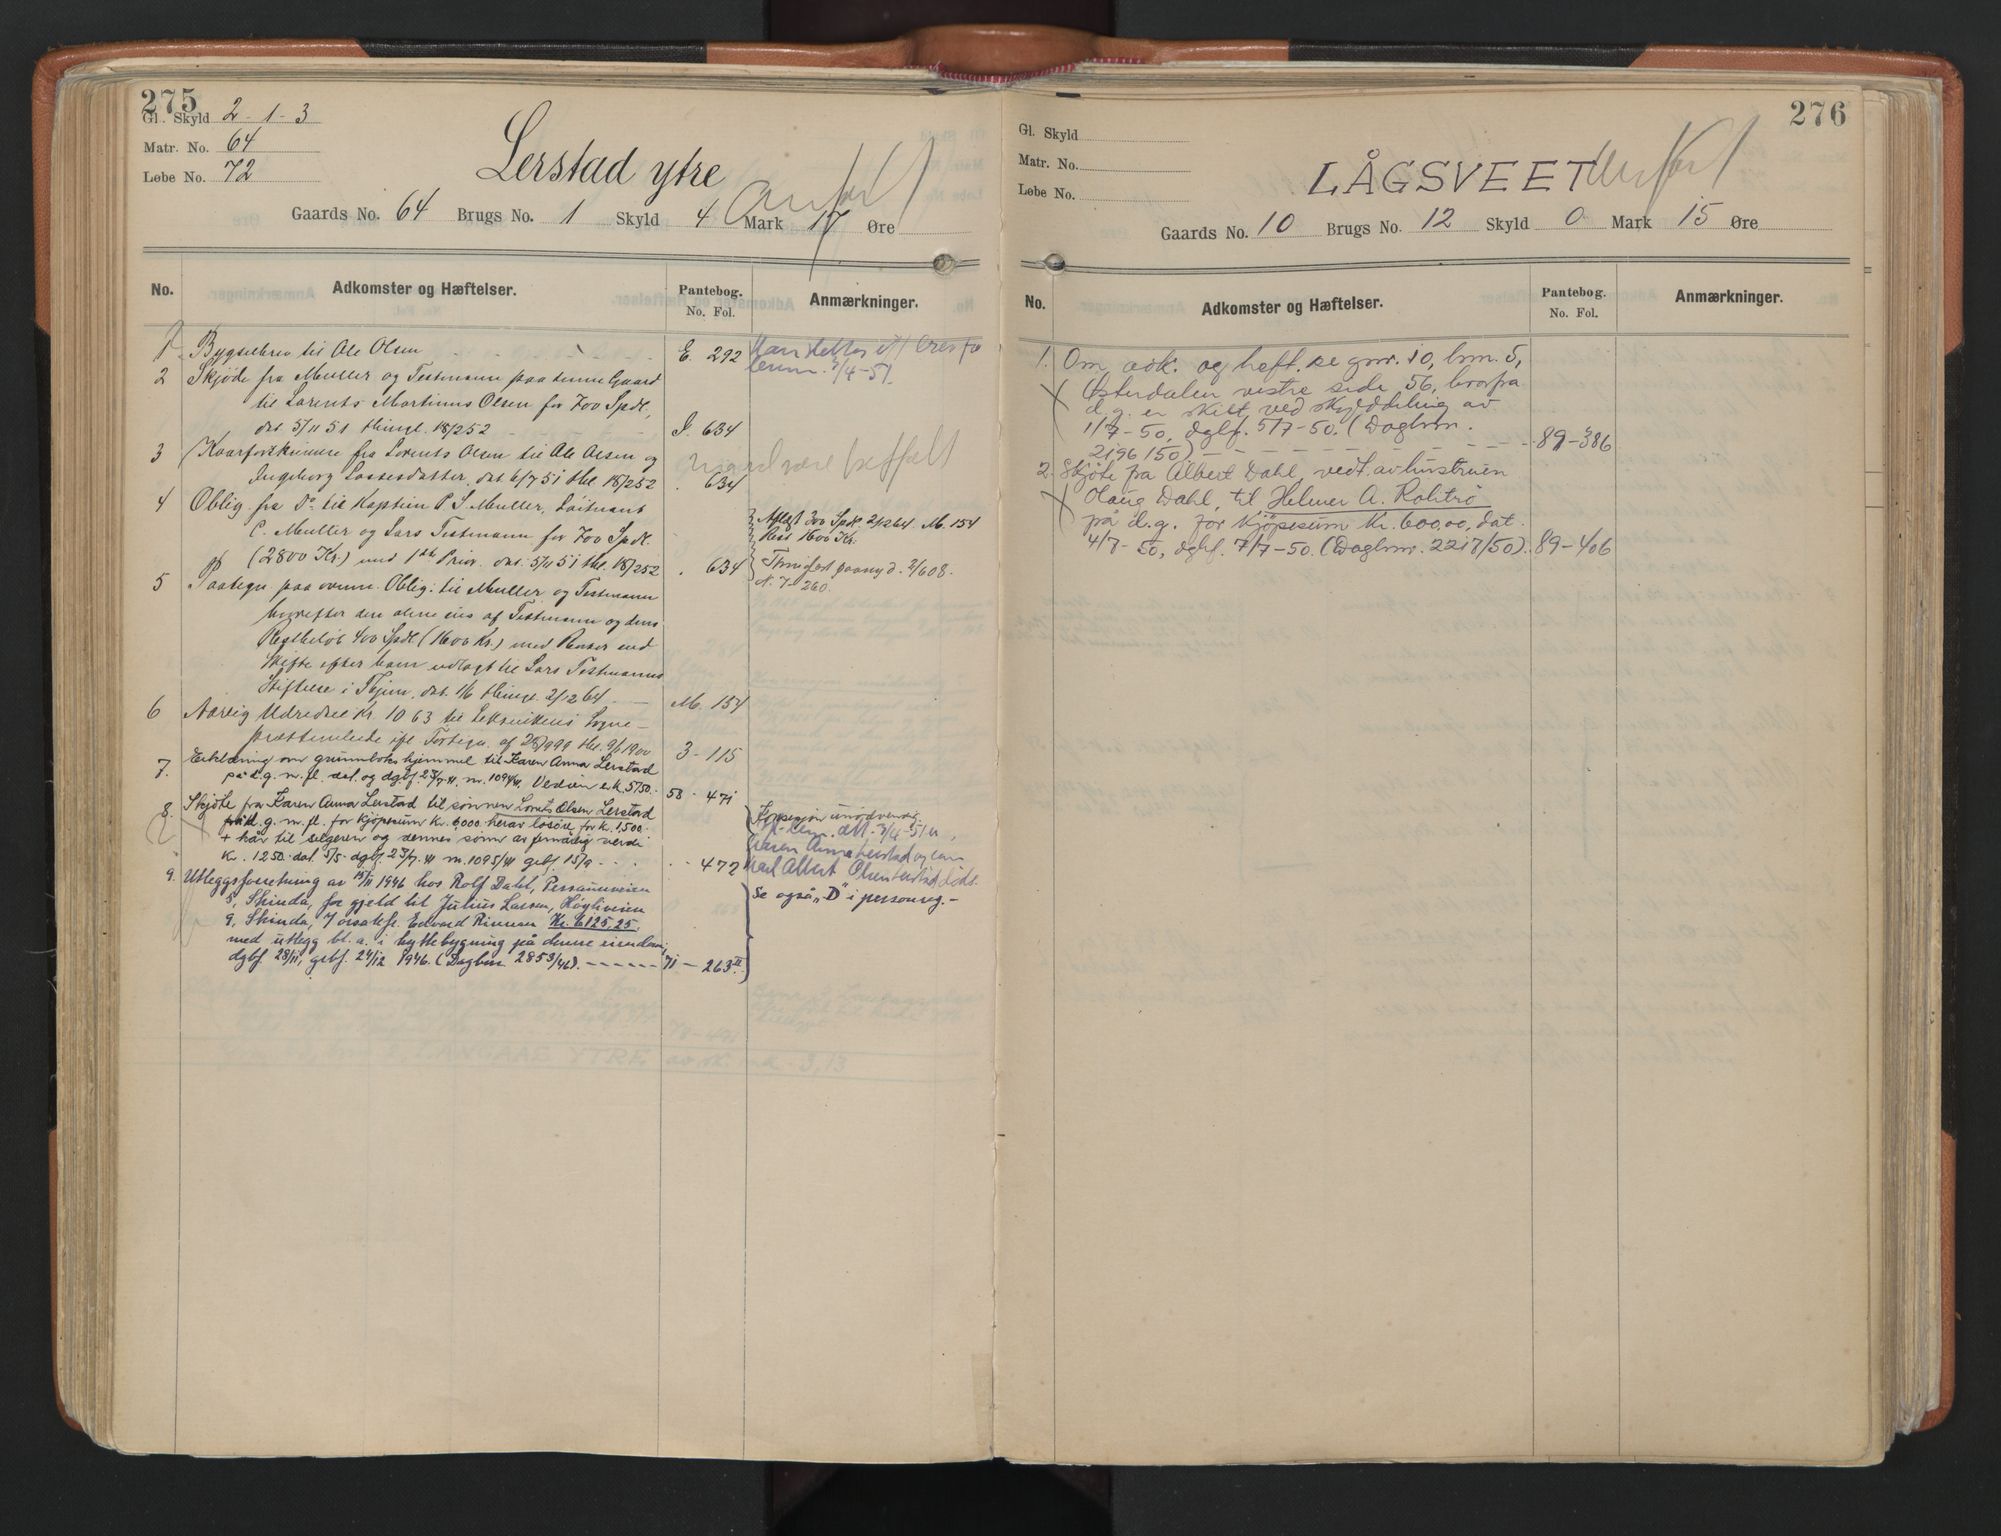 275
Gl. Skyld 2-1-3
Matr. No. 64
Løbe No. 72
Lerstad ytre
Gaards No. 64 Brugs No. 1 Skyld 4 Mark 17 Øre
No. Adkomster og Hæftelser. Pantebog. No. Fol. Anmærkninger.
1 Bygselbrev til Ole Olsen E. 292
7/4-51.
2 Skjøde fra Muller og Testmann paa denne Gaard
til Lorents Martinus Olsen for 700 Spdl.,
dat. 5/11 51 thingl. 18/2 52 I. 634
3 Kaarforskrivn. fra Lorents Olsen til Ole Olsen og
Ingeborg Lassesdatter, dat. 6/7 51 thl. 18/2 52 . 634
4 Oblig. fra Do til Kaptein P. S. Muller, Løitnant
C. Muller og Lars Testmann for 700 Spdl.
(2800 Kr.) med 1ste Prior. dat. 5/11 51 thl. 18/2 52 . 634
Afløst 300 Spdl. 2/12 64. M. 154
Rest 1600 Kr.
Thinglæst paany d. 3/6 08.
N. 7-260.
5 Paategn. paa ovenn. Oblig. til Muller og Testmann
hvorefter den alene eies af Testmann og dens
Restbeløb 400 Spdl. (1600 Kr.) med Renter ved
Skifte efter ham udlagt til Lars Testmanns
Stiftelse i Thjem, dat. 1/6 thingl. 2/12 64 M. 154
6 Aarlig Udredsel Kr. 10 63 til Leksvikens Sogne-
præstembede ifl. Fortegn. af 1899 thl. 9/6 1900 3-115
7. Erklæring om grunnbokshjemmel til Karen Anna Lerstad
på d.g. m. fl. dat. og dgbf. 23/7-41 nr. 1094/41. Verdien e.k. 5750. 58-471
8. Skjøte fra Karen Anna Lerstad til sønnen Lorents Olsen Lerstad
d.g. m. fl. for kjøpesum kr. 6000 herav løsøre for kr. 1,500.-
+ kår til selgeren og dennes sønn av femårlig verdi
kr. 1250.- dat. 5/5- dgbf. 23/7-41 nr. 1095/41 gebf. 15/9 - 472
Konsesjon unødvendig
Karen Anna Lerstad og
Karl Albert Olsen Lerstad døde.
9. Utleggsforretning av 15/11 1946 hos Rolf Dahl, Persaunveien
5, Strinda, for gjeld til Julius Larsen, Høgliveien
9, Strinda, v/orsakfr. Edvard Rinnan Kr. 6125,25,
med utlegg bl. a. i hyttebygning på denne eiendom,
dgbf. 28/11, gebf. 24/12 1946. (Dagbnr. 2853/46). 71-263 II
Se også "D" i personreg.-
276
Gl. Skyld
Matr. No.
Løbe No.
LÅGSVEET
Gaards No. 10 Brugs No. 12 Skyld 0 Mark 15 Øre
No. Adkomster og Hæftelser. Pantebog. No. Fol. Anmærkninger.
1. Om adk. og heft. se gnr. 10, bnr. 5,
Østerdalen vestre side 56, hvorfra
d.g. er skilt ved skylddeling av
1/7-50, dgbf. 5/7-50. (Dagbnr.
2196/50) 89-386
2. Skjøte fra Albert Dahl, vedt. av hustruen
Olaug Dahl, til Helmer A. Rølitrø
på d.g. for kjøpesum kr. 600,00, dat.
4/7-50, dgbf. 7/7-50. (Dagbnr. 2217/50). 89-406